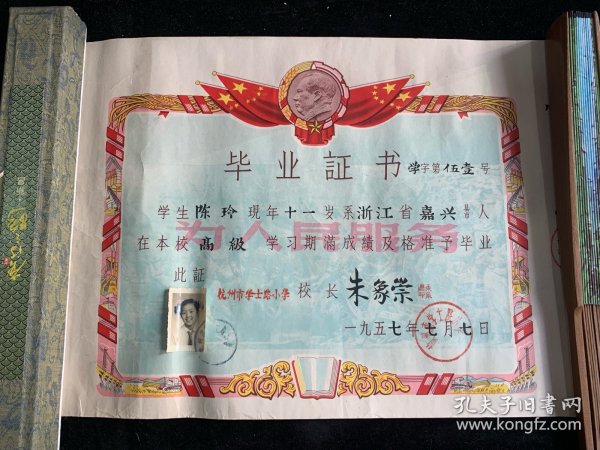 毕业証书
学字第伍壹号
学生陈玲现年十一岁系浙江省嘉兴县人
在本校高级学习期满成绩及格准予毕业
为人民服务
此証
杭州市学士路小学 校长 朱象崇
一九五七年七月七日
孔夫子旧书网
www.kongfz.com